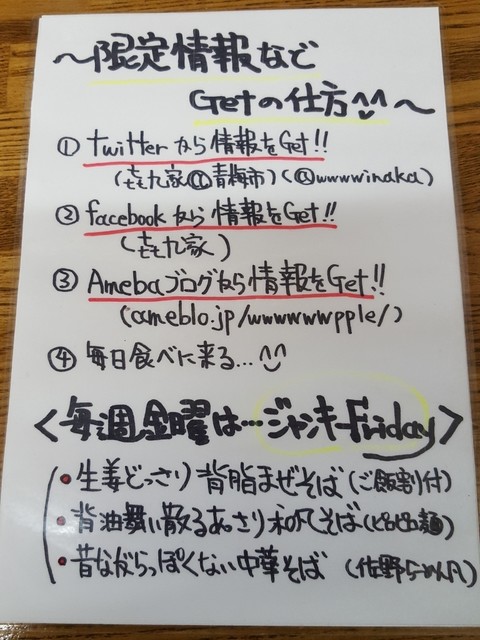 〜限定情報など
Getの仕方^^〜
① twitterから情報をGet!!
(㐂九家@青梅市)(@wwwwinaka)
② facebookから情報をGet!!
(㐂九家)
③ Amebaブログから情報をGet!!
(ameblo.jp/wwwwwwpple/)
④ 毎日食べに来る…^^
<毎週金曜は…ジャンキーFriday>
・生姜どっさり背脂まぜそば(ご飯割付)
・背油舞い散るあっさり和風そば(ピロピロ麺)
・昔ながらっぽくない中華そば (佐野らーめん風)